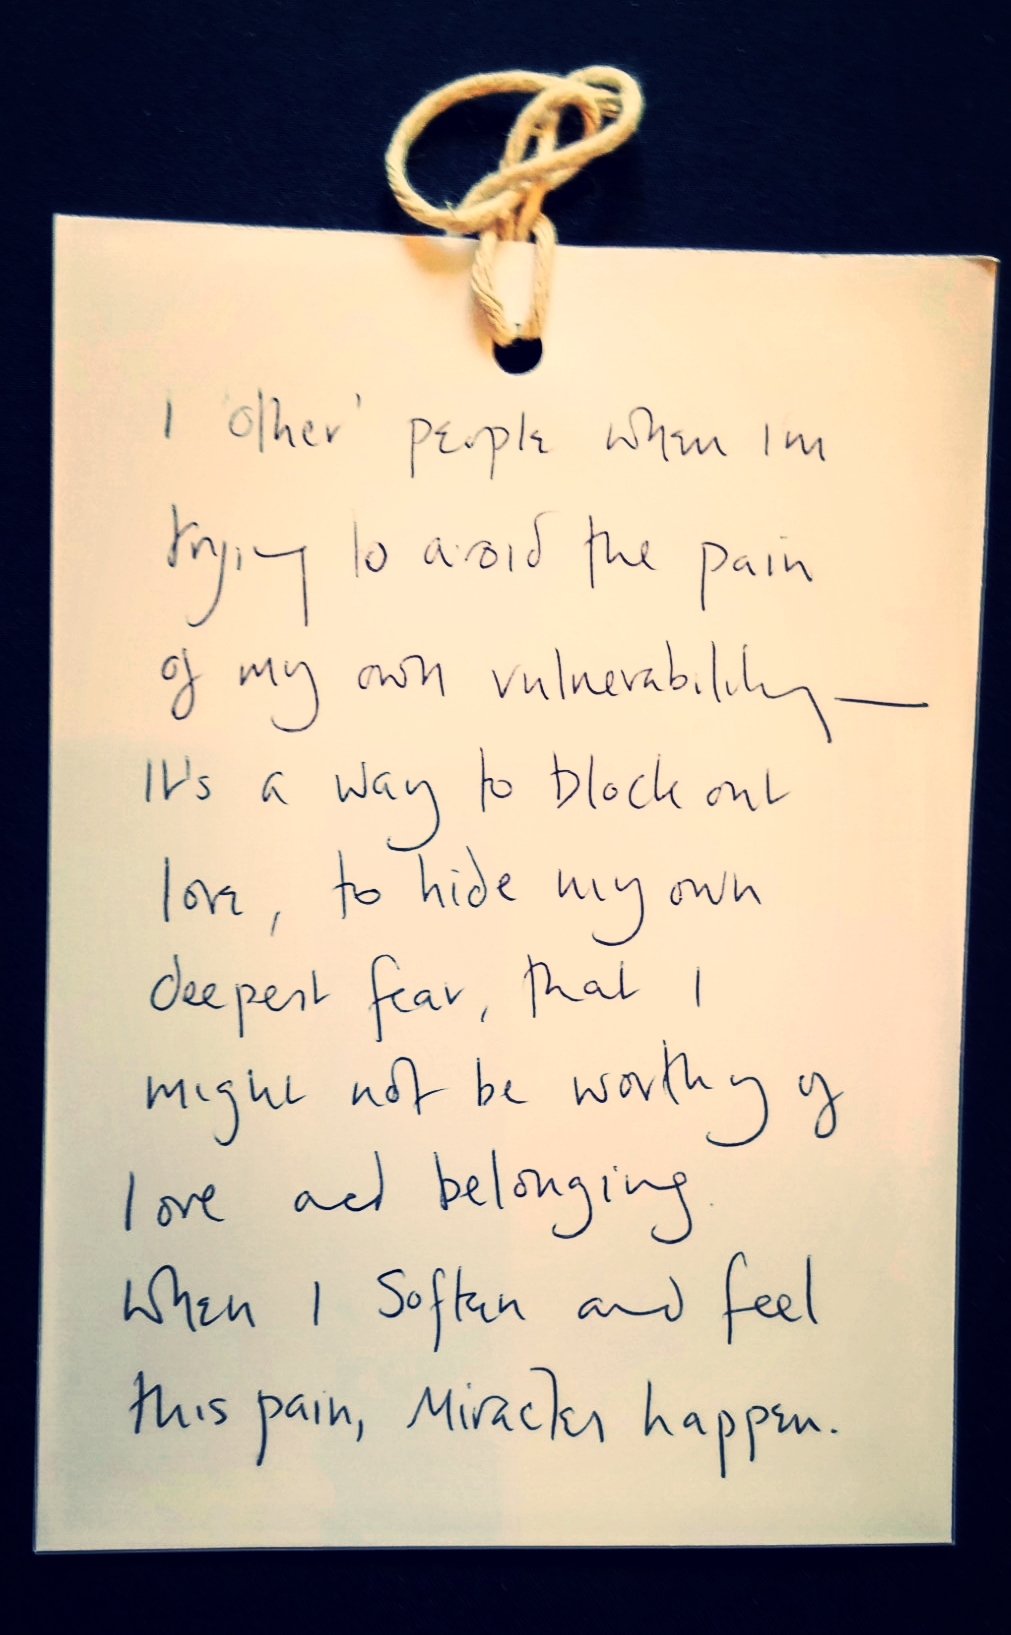 I 'other' people when Im
trying to avoid the pain
of my own vulnerability —
It's a way to block out
love, to hide my own
deepest fear, that I
might not be worthy of
love and belonging.
When I Soften and feel
this pain, Miracles happen.